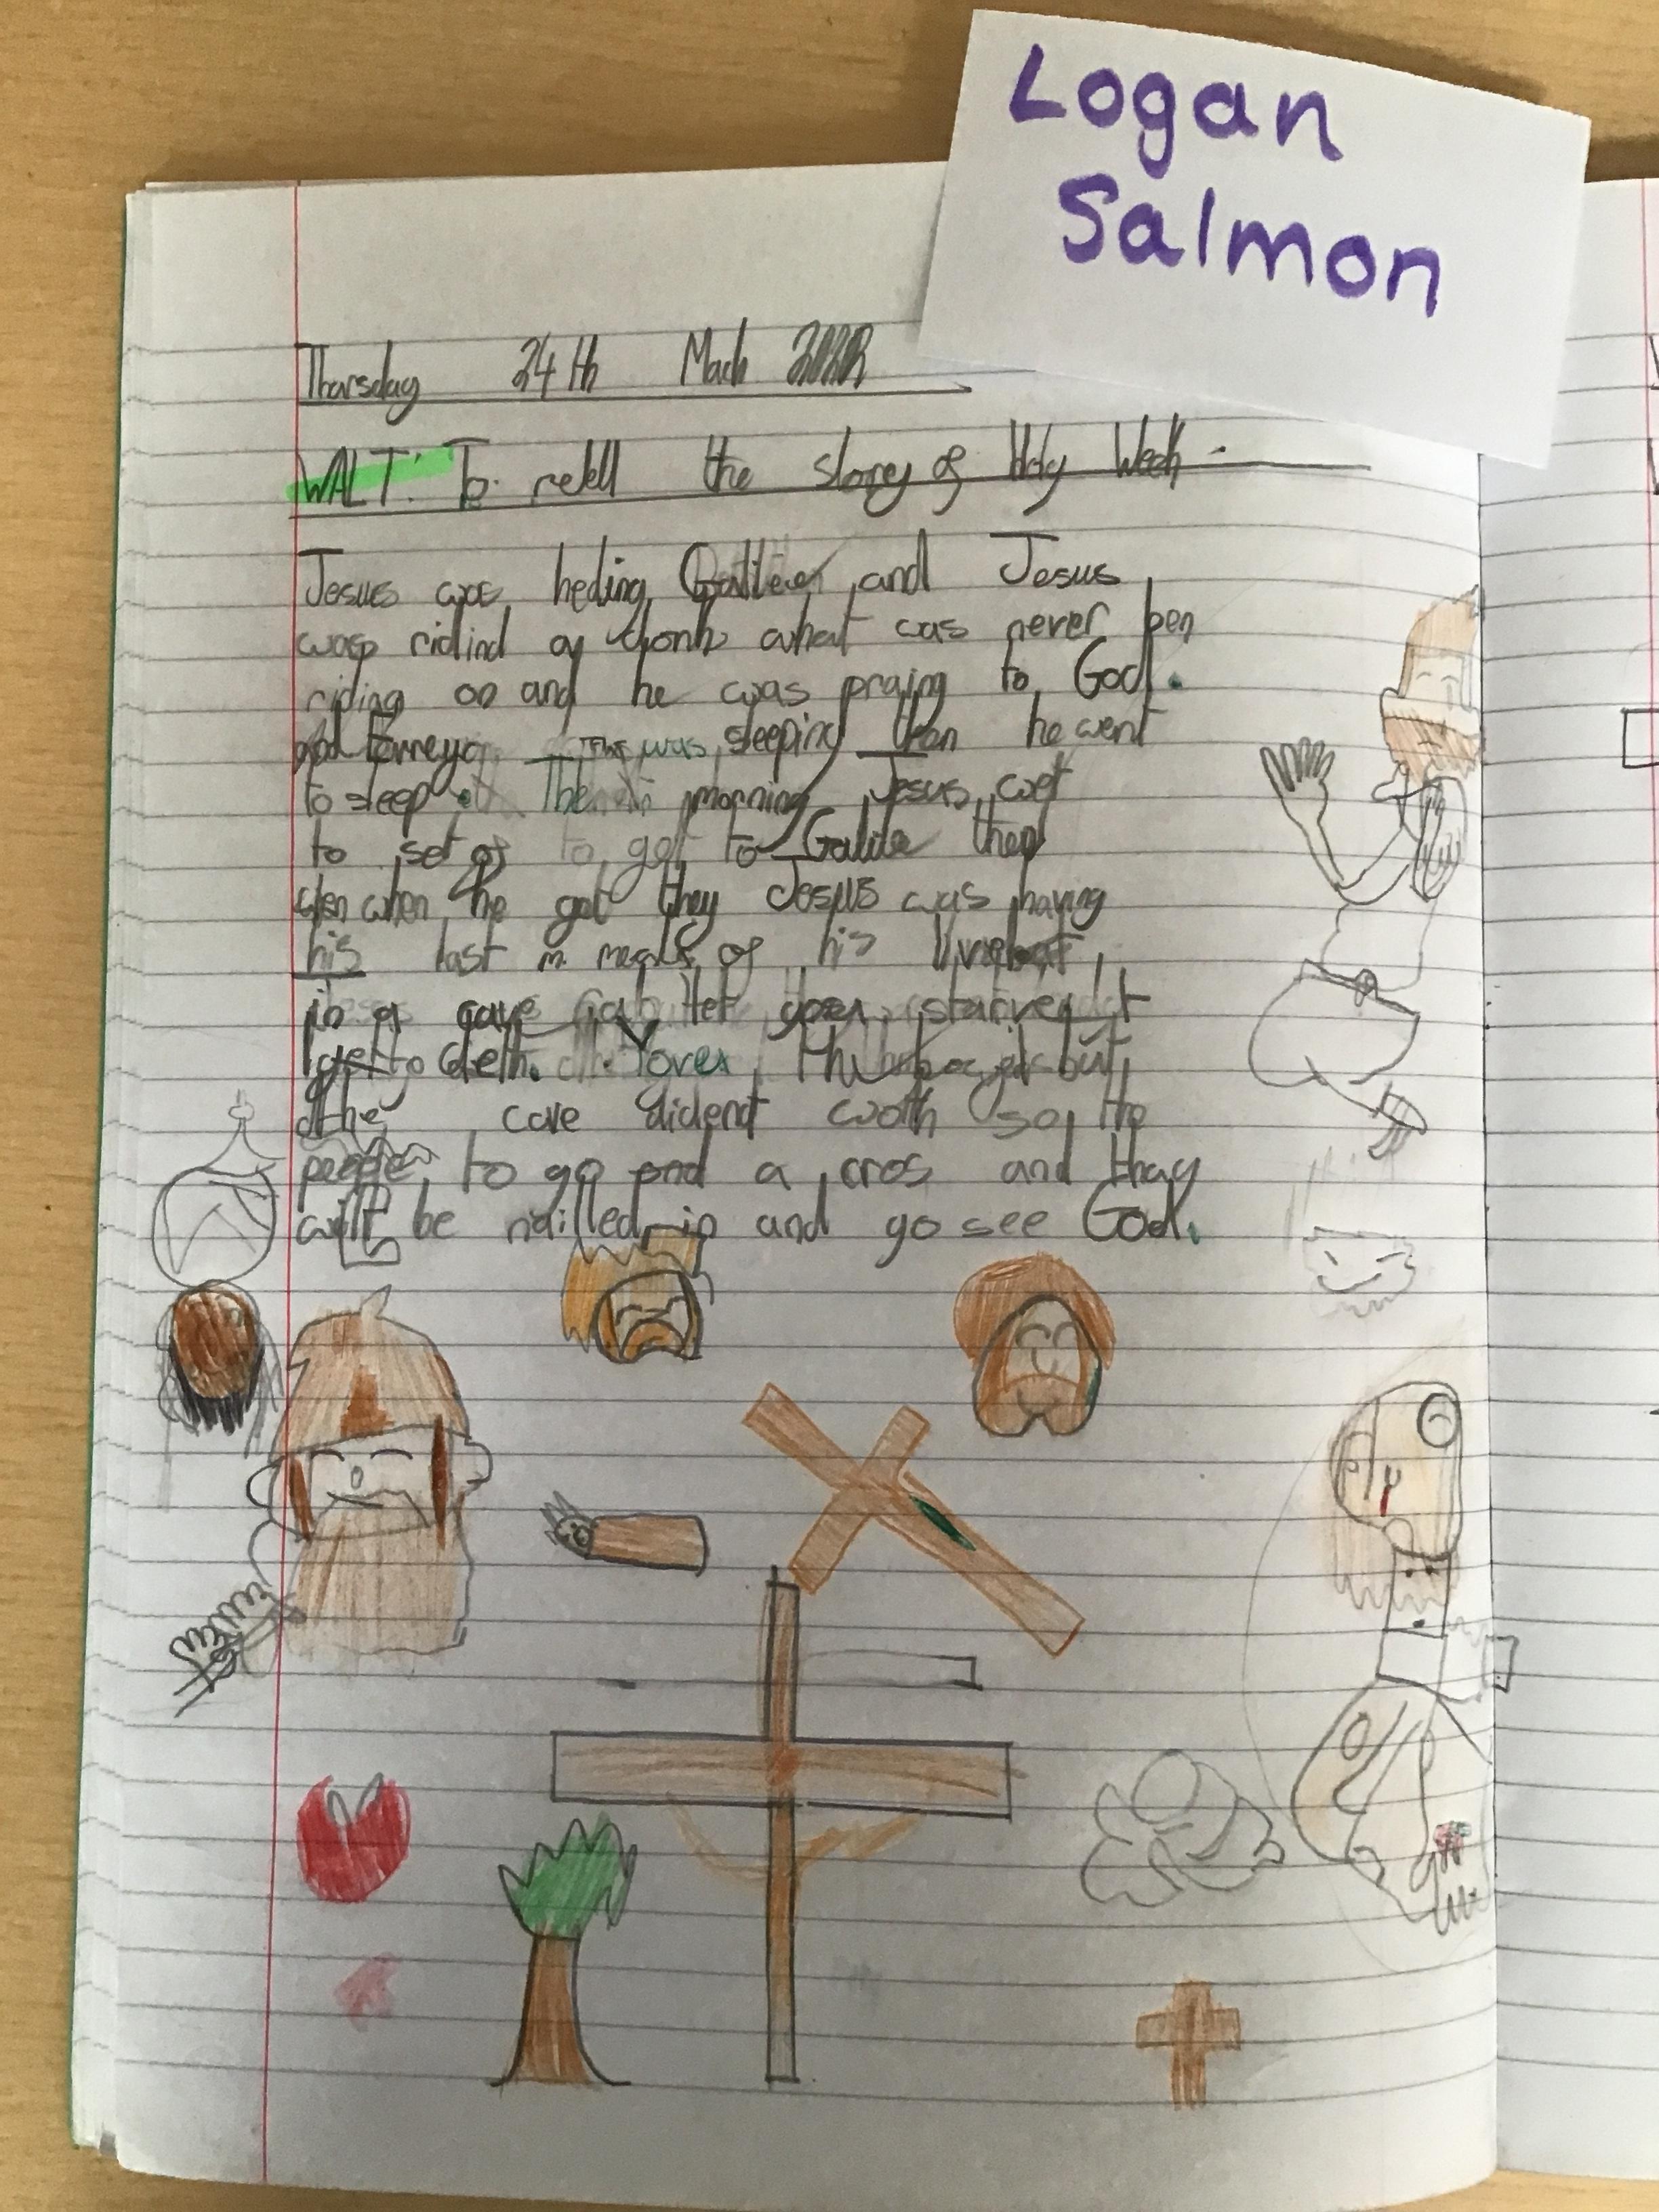 Logan
Salmon
Thorsday 24th Mach
WALT: To retell the storey of Holy Week.
Jesus was heding Galilee and Jesus
was ridind a donk what was never ben
riding on and he was praing to God.
and was sleeping then he went
to sleep. The morning Jesus wet
to set of to get to Galile then
when he got they Jesus was having
his last meals of his
in a cave
to deth. but
the cave dident woth so the
people to go and a cros and thay
will be nailled in and go see God.